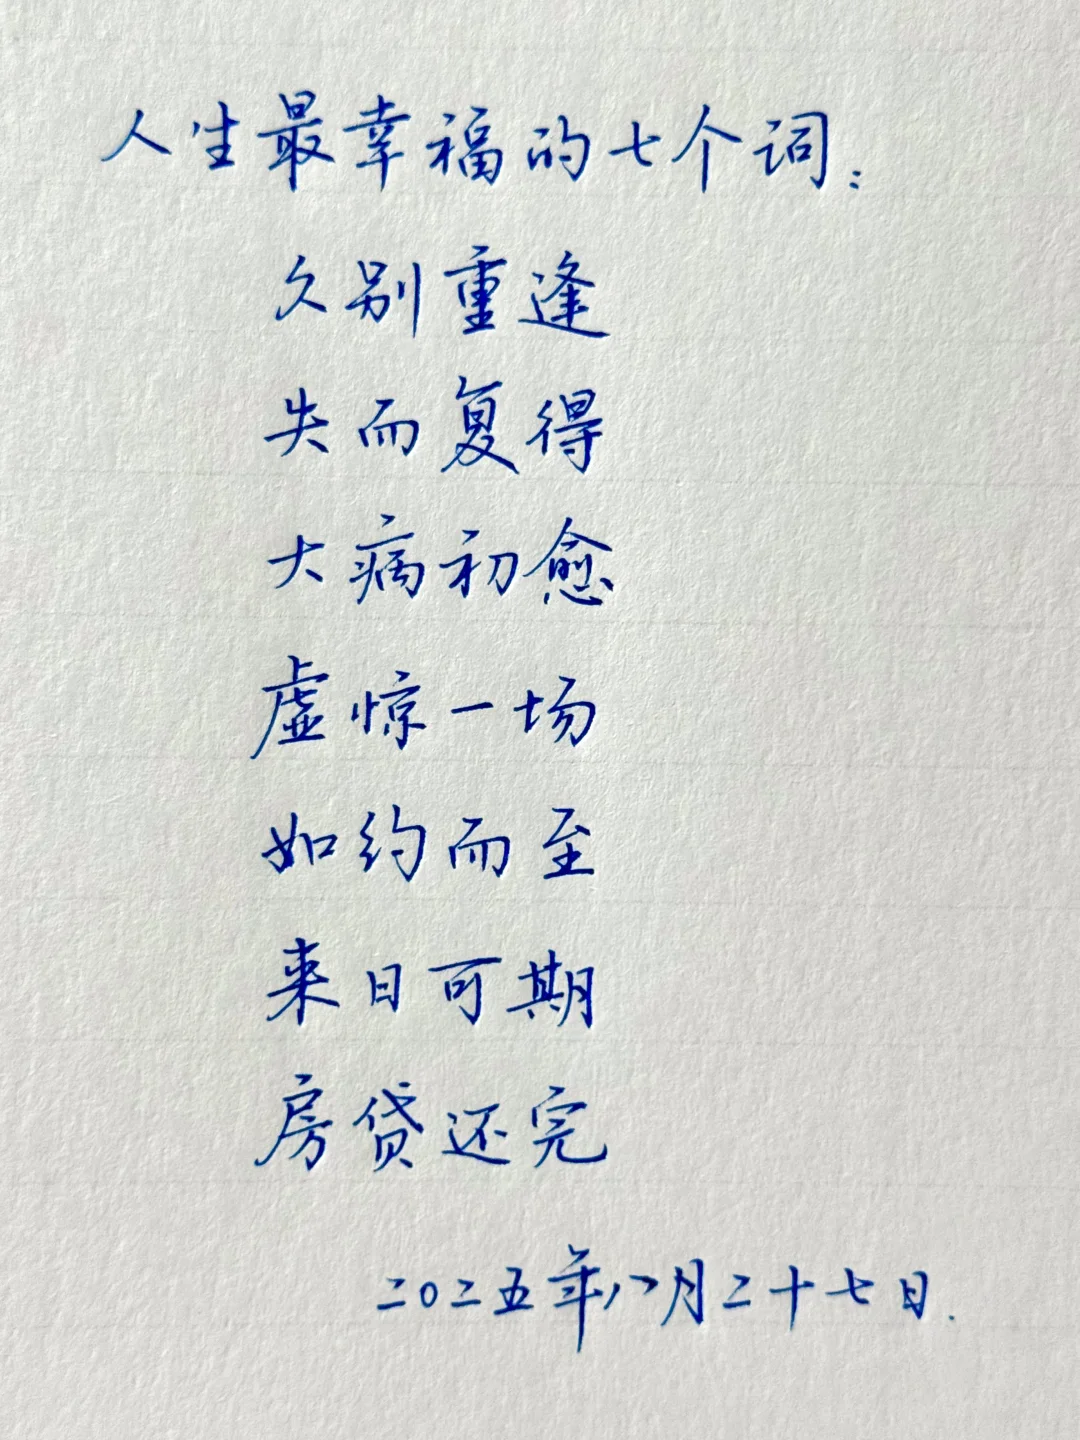 人生最幸福的七个词:
久别重逢
失而复得
大病初愈
虚惊一场
如约而至
来日可期
房贷还完
二〇二五年八月二十七日.